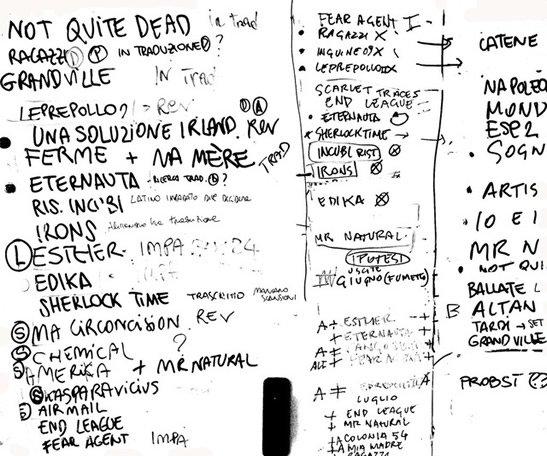 NOT QUITE DEAD in trad
RAGAZZI D P IN TRADUZIONE D ?
GRANDVILLE in trad
LEPREPOLLO 9 REV D A
UNA SOLUZIONE IRLAND. REV
FERME + MA MÈRE TRAD
ETERNAUTA RICERCA TRAD. ?
RIS. INCUBI LATINO
IRONS
L ESTHER IMPA
EDIKA
SHERLOCK TIME TRASCRITTO MANCANO SCANSIONI
S MA CIRCONCISION REV
S CHEMICAL ?
S AMERIKA + MR NATURAL
S KASPARAVICIUS
AIR MAIL
END LEAGUE
FEAR AGENT IMPA
FEAR AGENT I
RAGAZZI X
INGUINE
LEPREPOLLO IX
SCARLET TRACES
END LEAGUE
ETERNAUTA
SHERLOCK TIME
INCUBI RIST
IRONS
EDIKA
MR NATURAL
IPOTESI
USCITE
GIUGNO (FUMETTO)
A + ESTHER +
+ ETERNAUTA +
A
LUGLIO
+ END LEAGUE
+ MR NATURAL
COLONIA 54
MIA MADRE
RAGAZZI
CATENE
NAPOLEO
MOND
ESP2
SOGN
ARTIS
IO E I
MR N
NOT QUI
BALLATE
B ALTAN
TARDI → SET
GRANDVILLE
PROBST